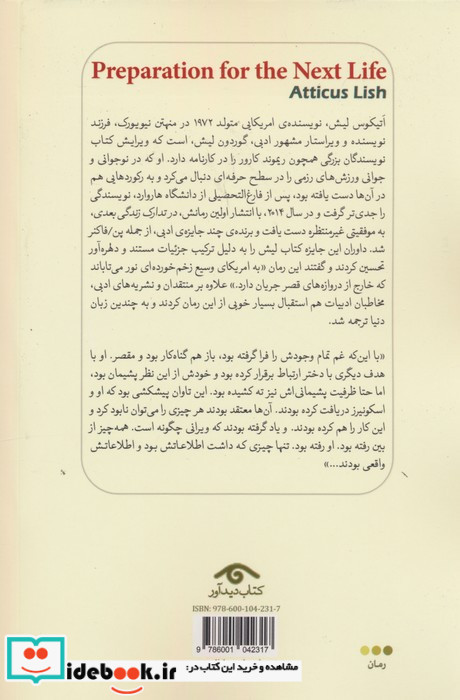 Preparation for the Next Life
Atticus Lish
اَتیکوس لیش، نویسنده‌ی امریکایی متولد ۱۹۷۲ در منهتن نیویورک، فرزند
نویسنده و ویراستار مشهور ادبی، گوردون لیش، است که ویرایش کتاب
نویسندگان بزرگی همچون ریموند کارور را در کارنامه دارد. او که در نوجوانی و
جوانی ورزش‌های رزمی را در سطح حرفه‌ای دنبال می‌کرد و به رکوردهایی هم
در آن‌ها دست یافته بود، پس از فارغ‌التحصیلی از دانشگاه هاروارد، نویسندگی
را جدی‌تر گرفت و در سال ۲۰۱۴، با انتشار اولین رمانش، در تدارک زندگی بعدی،
به موفقیتی غیرمنتظره دست یافت و برنده‌ی چند جایزه‌ی ادبی، از جمله پن/فاکنر
شد. داوران این جایزه کتاب لیش را به دلیل ترکیب جزئیات مستند و دلهره‌آور
تحسین کردند و گفتند این رمان «به امریکای وسیع زخم‌خورده‌ای نور می‌تاباند
که خارج از دروازه‌های قصر جریان دارد.» علاوه بر منتقدان و نشریه‌های ادبی،
مخاطبان ادبیات هم استقبال بسیار خوبی از این رمان کردند و به چندین زبان
دنیا ترجمه شد.
«با این‌که غم تمام وجودش را فرا گرفته بود، باز هم گناه‌کار بود و مقصر. او با
هدف دیگری با دختر ارتباط برقرار کرده بود و خودش از این نظر پشیمان بود،
اما حتا ظرفیت پشیمانی‌اش نیز ته کشیده بود. این تاوان پیشکشی بود که او و
اسکونیرز دریافت کرده بودند. آن‌ها معتقد بودند هر چیزی را می‌توان نابود کرد و
این کار را هم کرده بودند. و یاد گرفته بودند که ویرانی چگونه است. همه‌چیز از
بین رفته بود. او رفته بود. تنها چیزی که داشت اطلاعاتش بود و اطلاعاتش
واقعی بودند...»
کتاب دیدآور
ISBN: 978-600-104-231-7
9 786001 042317
رمان
مشاهده و خرید این کتاب در:
idebook.ir